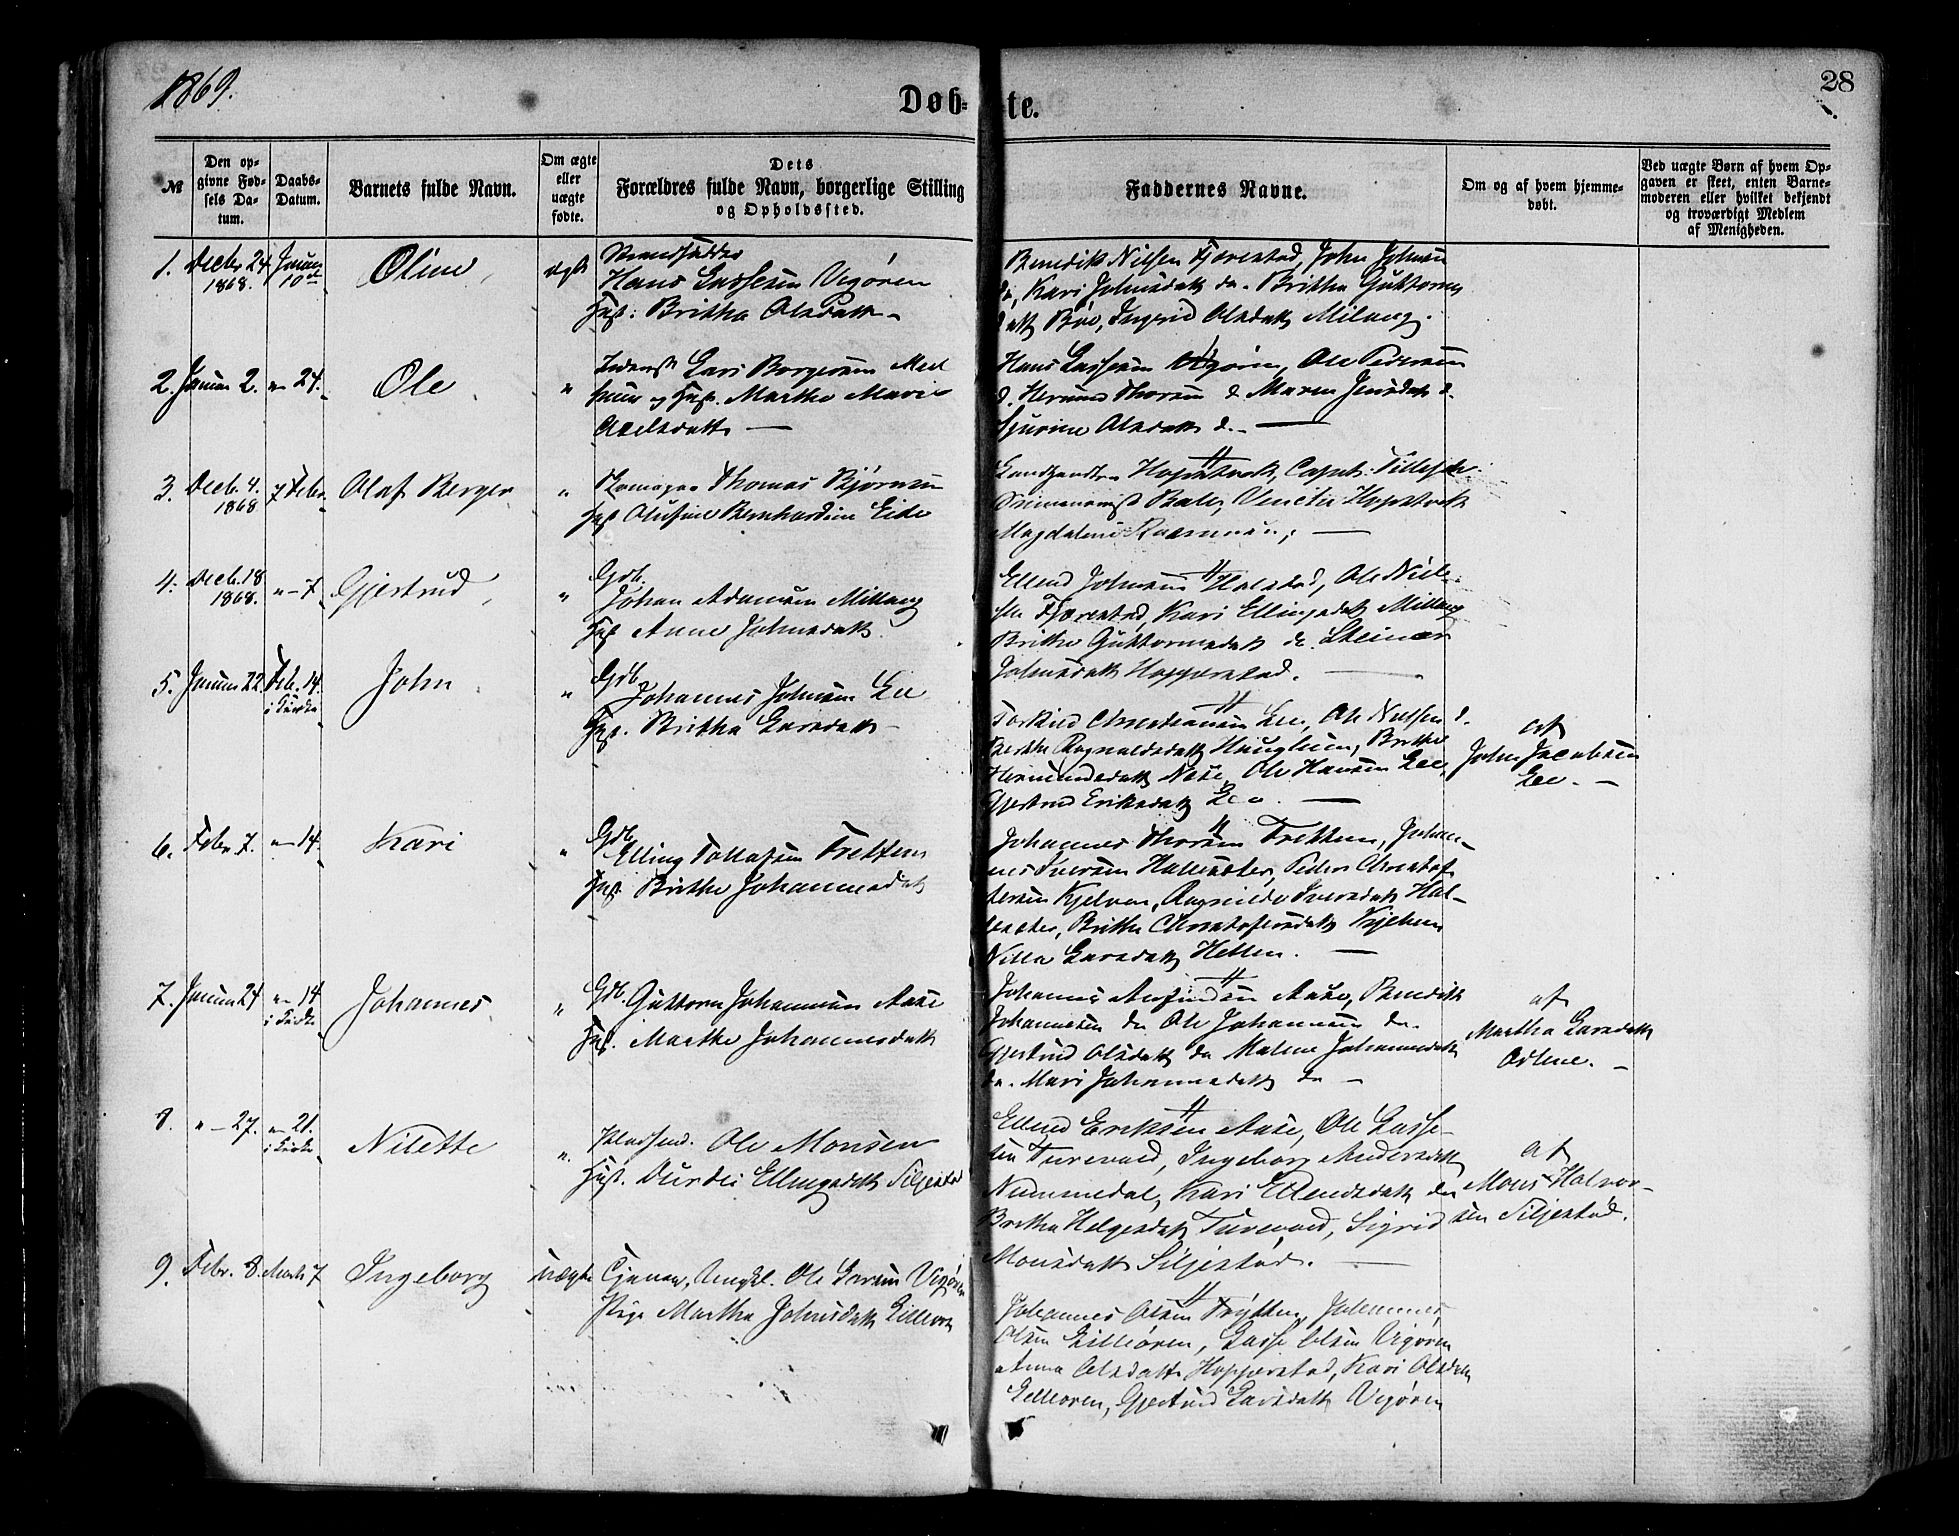 1869.
28
Døbte.
№
Den opgivne Fødsels Datum.
Daabs-Datum.
Barnets fulde Navn.
Om ægte eller uægte fødte.
Dets Forældres fulde Navn, borgerlige Stilling og Opholdssted.
Faddernes Navne.
Om og af hvem hjemmedøbt.
Ved uægte Børn af hvem Opgaven er skeet, enten Barnemoderen eller hvilket bekjendt og troværdigt Medlem af Menigheden.
1. Decbr 24 1868. Januar 10de
Oline
ægte
Strandsidder
Hans Lassesen Vigøren
Hust: Britha Olsdatt
Benedik Nilsen Fjærestad, John Johnsen
do, Kari Johnsdatt do. Britha Guttorms
datt Böe, Ingrid Olsdatt Milang.
2. Januar 2. " 24.
Ole
"
Lars Borgersen
og Hust. Martha Marie
Axelsdatt
Hans Lassesen Vigøren, Ole Pedersen
d. Hermund Thorsen d. Maren Jensdatt d.
Olsdatt d.
3. Decb. 4. 1868 7 Febr.
Olaf Berger
"
Thomas Bjørnsen
Hust Olufine Bernhardine Eide
Landhandler Hopstock, Capt.
Bale, Venetie Hopstock
Magdalene Rasmussen;
4. Decb. 18 1868. " 7
Gjertrud
"
Gdb.
Johan Adamsen Millang
Hust Anne Johnsdatt
Ellend Johnsen Halstad, Ole Nielsen
Fjærestad, Kari Ellingsdatt Millang
Britha Guttormsdatt do. Steinar
Johnsdatt Hopperstad.
5. Januar 22. Feb. 14. i Kirke
John
"
Gdb.
Johannes Johnsen Lee
Hust. Britha Larsdatt
Torkild Christiansen Lee, Ole Nielsen d.
Berthe Ragnvaldsdatt Hauglum, Britha
Hermundsdatt Nese, Ole Hansen Lee,
Gjertrud Eriksdatt Lee.
af
John Jacobsen
Lee.
6. Febr 7. " 14.
Kari
"
Gdb.
Elling Tollefsen Tretten
Hust. Britha Johannesdatt
Johannes Thorsen Tretten, Johannes
Iversen Halsæter, Peder Christoffersen
Kjelven, Ragnilde Iversdatt Halsæter,
Britha Christofersdatt Kjelven
Nilla Larsdatt Hellen.
7. Januar 24 " 14 i Kirke
Johannes
"
Gdb. Guttorm Johannesen Aase
Hust. Martha Johannesdatt
Johannes Aase, Benedikt
Johannesen do Ole Johannesen do.
Gjertrud Olsdatt do Malene Johannesdatt
do. Mari Johannesdatt do
af
Martha Larsdatt
8. " 27. " 21. i Kirke
Nilette
"
Pladsmd. Ole Monsen
Hust. Durdei Ellingsdatt Siljestad
Ellend Eriksen Aase, Ole Lassesen
Turevold, Ingeborg Andersdatt
Nummedal, Kari Ellendsdatt do
Britha Helgesdatt Turevold, Sigrid
Monsdatt Siljestad.
af
Mons Halvorsen
Siljestad.
9. Febr. 8. Marts 7
Ingeborg
uægte
Tjener, Ungkl. Ole Larsen Vigøren
Pige Martha Johnsdatt Lilleøren
Johannes Olsen Trytten, Johannes
Olsen Lilleøren, Lasse Olsen Vigøren
Anna Olsdatt Hopperstad, Kari Olsdatt
Lilleøren, Gjertrud Larsdatt Vigøren